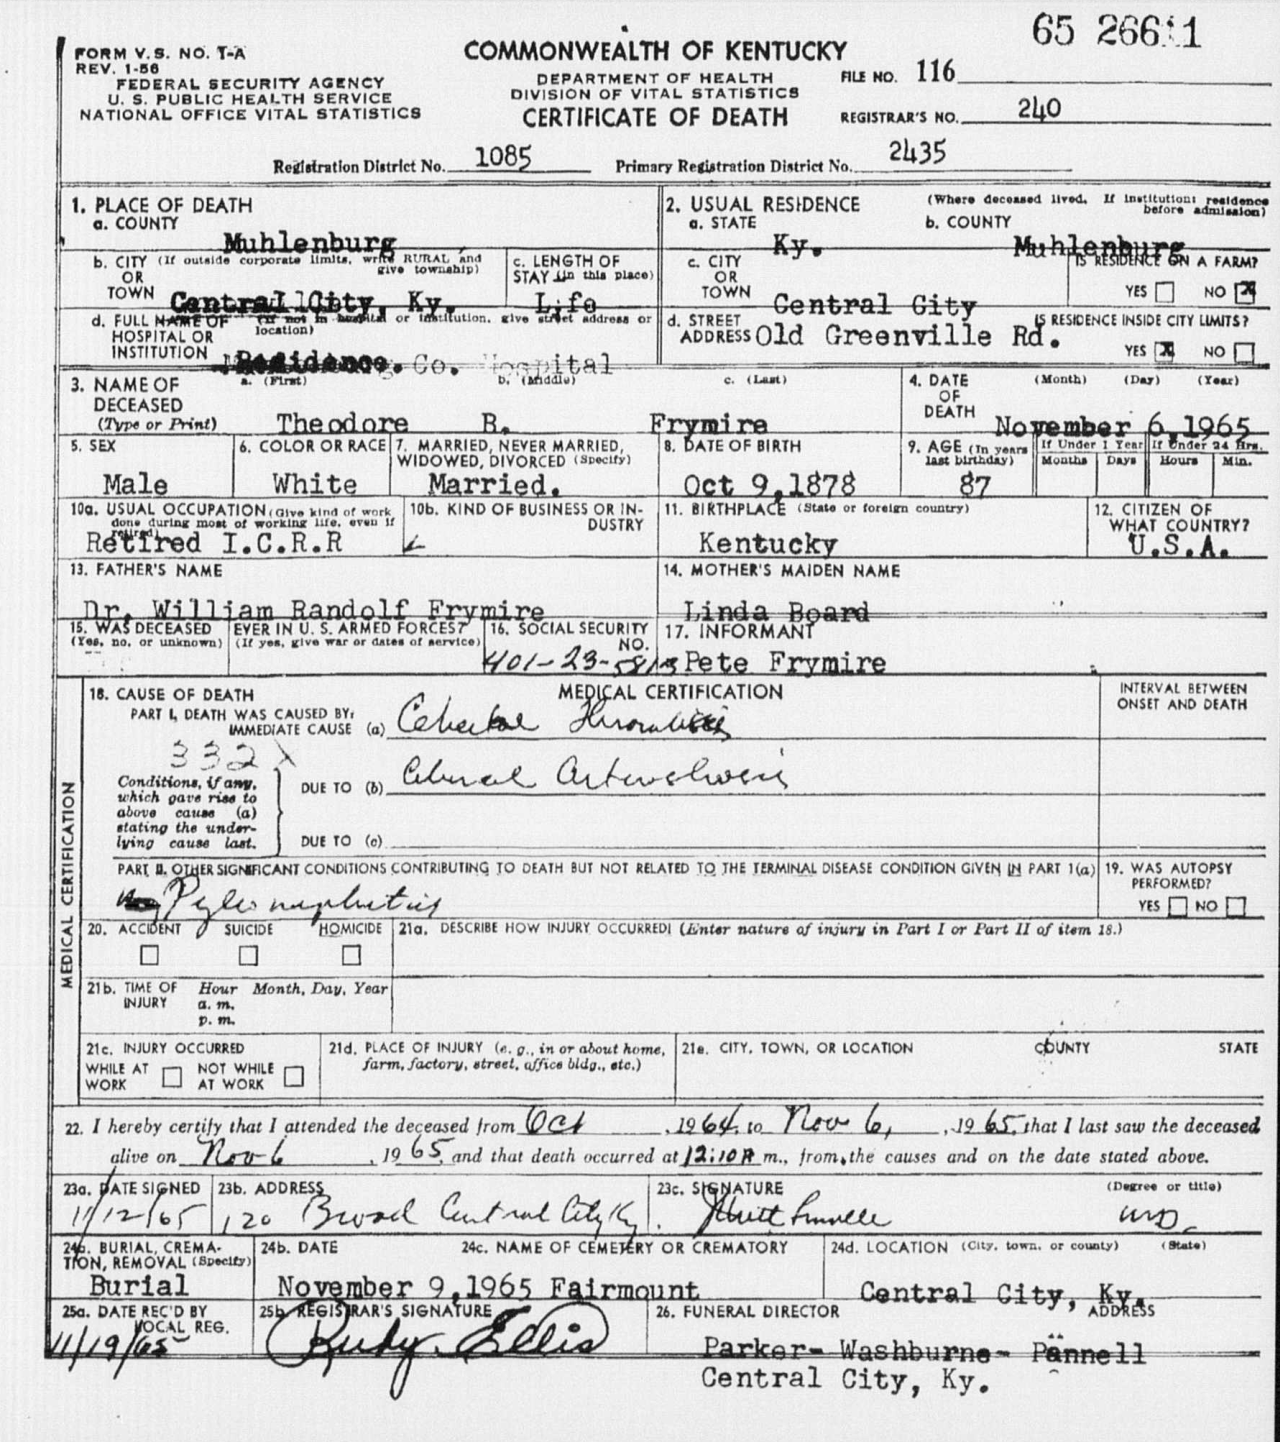 65 266
FORM V.S. NO. T-A
REV. 1-56
FEDERAL SECURITY AGENCY
U. S. PUBLIC HEALTH SERVICE
NATIONAL OFFICE VITAL STATISTICS
COMMONWEALTH OF KENTUCKY
DEPARTMENT OF HEALTH
DIVISION OF VITAL STATISTICS
CERTIFICATE OF DEATH
FILE NO. 116
REGISTRAR'S NO. 240
Registration District No. 1085 Primary Registration District No. 2435
1. PLACE OF DEATH
a. COUNTY
Muhlenburg
2. USUAL RESIDENCE (Where deceased lived. If institution: residence before admission)
a. STATE b. COUNTY
Ky. Muhlenburg
b. CITY (If outside corporate limits, write RURAL and give township)
OR
TOWN Central City, Ky.
c. LENGTH OF
STAY (in this place)
Life
c. CITY
OR
TOWN Central City
IS RESIDENCE ON A FARM?
YES NO X
d. FULL NAME OF (If not in hospital or institution, give street address or location)
HOSPITAL OR
INSTITUTION Residence. Co. Hospital
d. STREET
ADDRESS Old Greenville Rd.
IS RESIDENCE INSIDE CITY LIMITS?
YES X NO
3. NAME OF
DECEASED
(Type or Print)
a. (First) b. (Middle) c. (Last)
Theodore R. Frymire
4. DATE
OF
DEATH
(Month) (Day) (Year)
November 6,1965
5. SEX
Male
6. COLOR OR RACE
White
7. MARRIED, NEVER MARRIED,
WIDOWED, DIVORCED (Specify)
Married.
8. DATE OF BIRTH
Oct 9,1878
9. AGE (In years
last birthday)
87
If Under 1 Year If Under 24 Hrs.
Months Days Hours Min.
10a. USUAL OCCUPATION (Give kind of work
done during most of working life, even if
retired)
Retired I.C.R.R
10b. KIND OF BUSINESS OR IN-
DUSTRY
11. BIRTHPLACE (State or foreign country)
Kentucky
12. CITIZEN OF
WHAT COUNTRY?
U.S.A.
13. FATHER'S NAME
Dr. William Randolf Frymire
14. MOTHER'S MAIDEN NAME
Linda Board
15. WAS DECEASED EVER IN U. S. ARMED FORCES?
(Yes, no, or unknown) (If yes, give war or dates of service)
16. SOCIAL SECURITY
NO.
401-23-
17. INFORMANT
Pete Frymire
MEDICAL CERTIFICATION
18. CAUSE OF DEATH
MEDICAL CERTIFICATION
INTERVAL BETWEEN
ONSET AND DEATH
PART I. DEATH WAS CAUSED BY:
IMMEDIATE CAUSE (a) Cerebral Thrombosis
332X
Conditions, if any,
which gave rise to
above cause (a)
stating the under-
lying cause last.
DUE TO (b) Cerebral Arteriosclerosis
DUE TO (c)
PART II. OTHER SIGNIFICANT CONDITIONS CONTRIBUTING TO DEATH BUT NOT RELATED TO THE TERMINAL DISEASE CONDITION GIVEN IN PART I(a)
Pyelonephritis
19. WAS AUTOPSY
PERFORMED?
YES NO
20. ACCIDENT SUICIDE HOMICIDE
21a. DESCRIBE HOW INJURY OCCURRED! (Enter nature of injury in Part I or Part II of item 18.)
21b. TIME OF
INJURY
Hour Month, Day, Year
a. m.
p. m.
21c. INJURY OCCURRED
WHILE AT
WORK
NOT WHILE
AT WORK
21d. PLACE OF INJURY (e. g., in or about home,
farm, factory, street, office bldg., etc.)
21e. CITY, TOWN, OR LOCATION COUNTY STATE
22. I hereby certify that I attended the deceased from Oct, 1964, to Nov 6, , 1965, that I last saw the deceased
alive on Nov 6, 1965, and that death occurred at 12:10 A m., from the causes and on the date stated above.
23a. DATE SIGNED
11/12/65
23b. ADDRESS
120 Broad Central City Ky.
23c. SIGNATURE (Degree or title)
M.D.
24a. BURIAL, CREMA-
TION, REMOVAL (Specify)
Burial
24b. DATE
November 9,1965
24c. NAME OF CEMETERY OR CREMATORY
Fairmount
24d. LOCATION (City, town, or county) (State)
Central City, Ky.
25a. DATE REC'D BY
LOCAL REG.
11/19/65
25b. REGISTRAR'S SIGNATURE
Rudy Ellis
26. FUNERAL DIRECTOR ADDRESS
Parker- Washburne- Pannell
Central City, Ky.